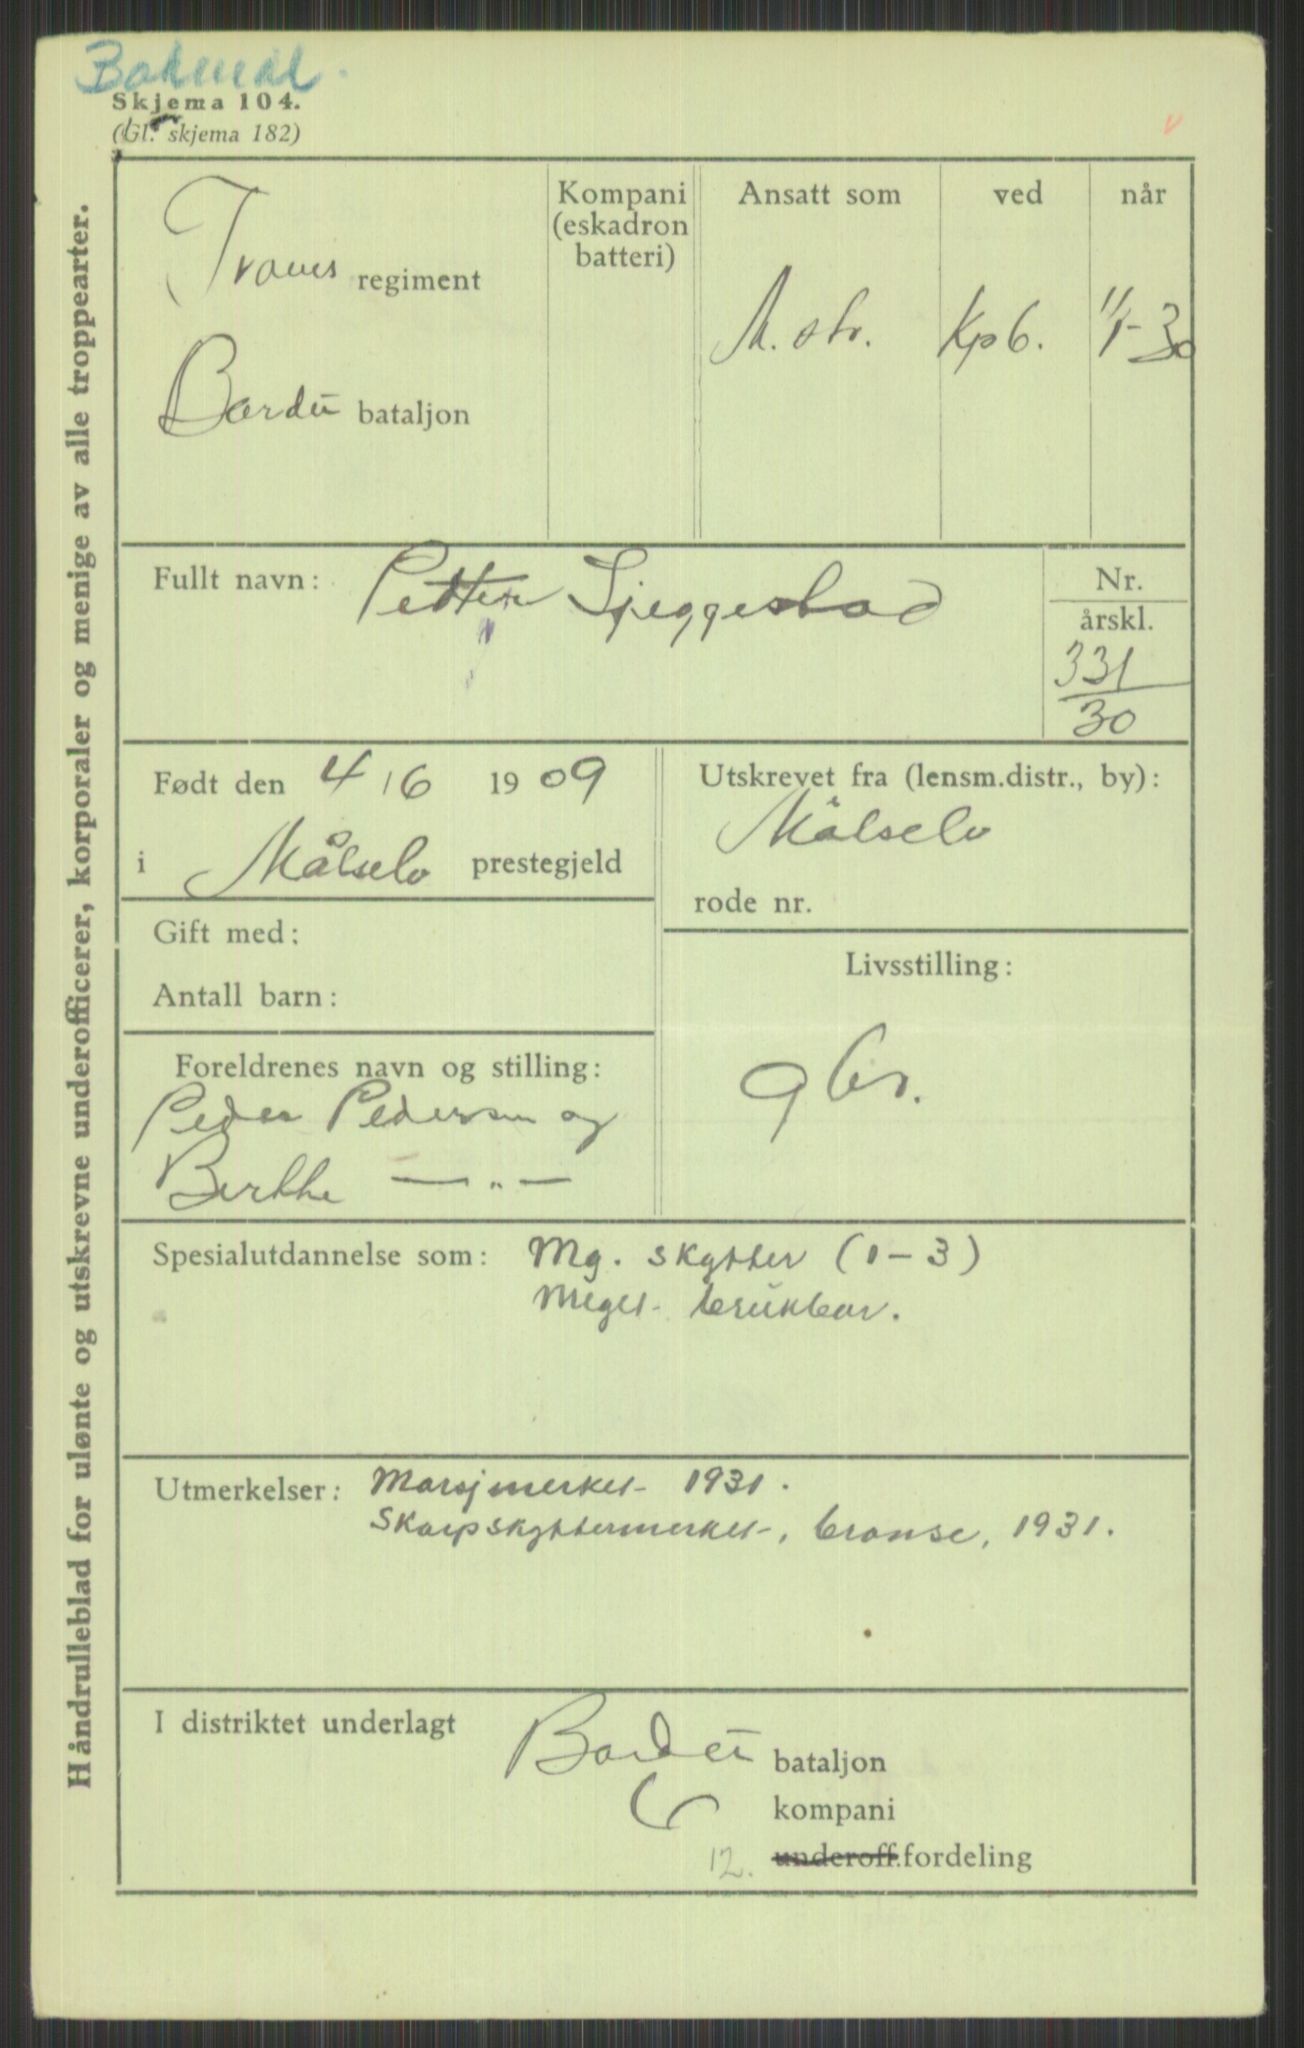 Bokmål.
Skjema 104.
(Gl. skjema 182)
Håndrulleblad for ulønte og utskrevne underofficerer, korporaler og menige av alle troppearter.
Troms regiment
Bardu bataljon
Kompani
(eskadron
batteri)
Ansatt som ved når
M. str. Kp 6. 1/1-30
Fullt navn: Petter Ljeggestad
Nr.
årskl.
331
30
Født den 4/6 1909
i Målselv prestegjeld
Utskrevet fra (lensm.distr., by):
Målselv
rode nr.
Gift med:
Antall barn:
Livsstilling:
gbr.
Foreldrenes navn og stilling:
Peder Pedersen og
Berthe — " —
Spesialutdannelse som: Mg. skytter (1-3)
Meget brukbar.
Utmerkelser: Marsjmerket 1931.
Skarpskyttermerket, bronse, 1931.
I distriktet underlagt
Bardu bataljon
6 kompani
12. underoff.fordeling